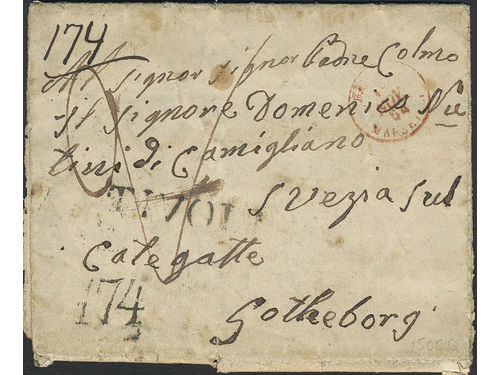 174
Al Signor Signor Padne Colmo
St Signore Domenico Nu
tini di Camigliano
TIVOLI
Svezia Sul
Categatte
174
Gotheborg
15000